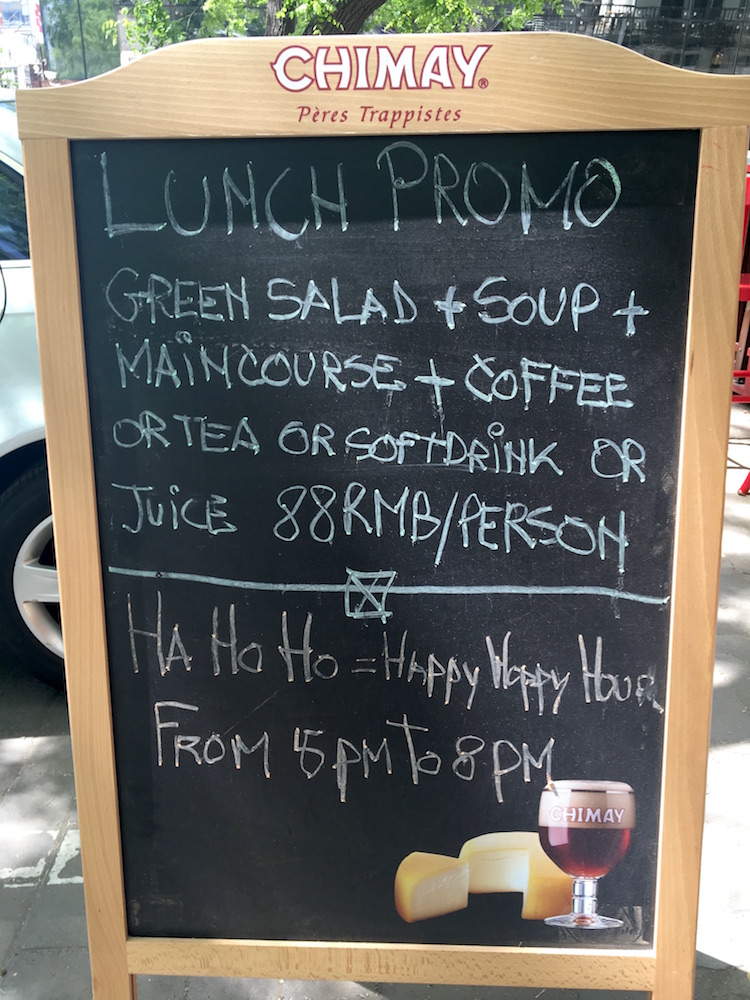 CHIMAY®
Pères Trappistes
LUNCH PROMO
GREEN SALAD + SOUP +
MAIN COURSE + COFFEE
OR TEA OR SOFTDRINK OR
JUICE 88RMB/PERSON
HA HO HO = HAPPY HOPPY HOUR
FROM 5PM TO 8PM
CHIMAY